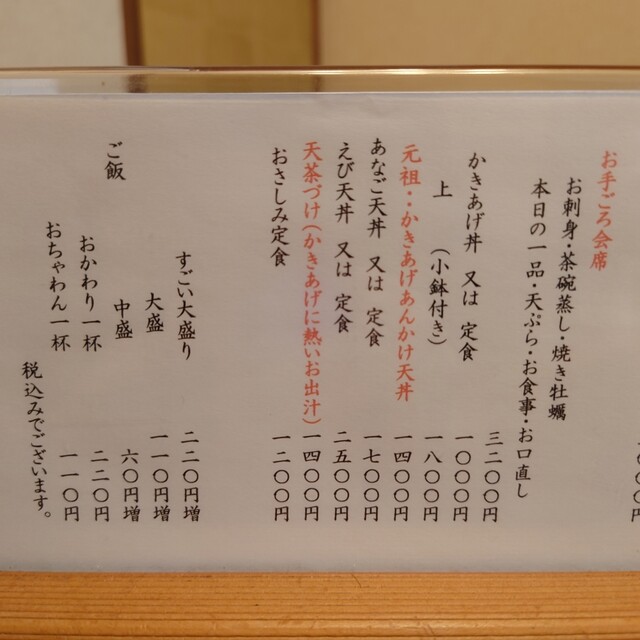 お手ごろ会席
お刺身・茶碗蒸し・焼き牡蠣
本日の一品・天ぷら・お食事・お口直し
三二〇〇円
かきあげ丼 又は 定食 一〇〇〇円
上 (小鉢付き) 一八〇〇円
元祖・・かきあげあんかけ天丼 一四〇〇円
あなご天丼 又は 定食 一七〇〇円
えび天丼 又は 定食 二五〇〇円
天茶づけ(かきあげに熱いお出汁) 一四〇〇円
おさしみ定食 一二〇〇円
すごい大盛り 二二〇円増
大盛 一一〇円増
ご飯 中盛 六〇円増
おかわり一杯 二二〇円
おちゃわん一杯 一一〇円
税込みでございます。